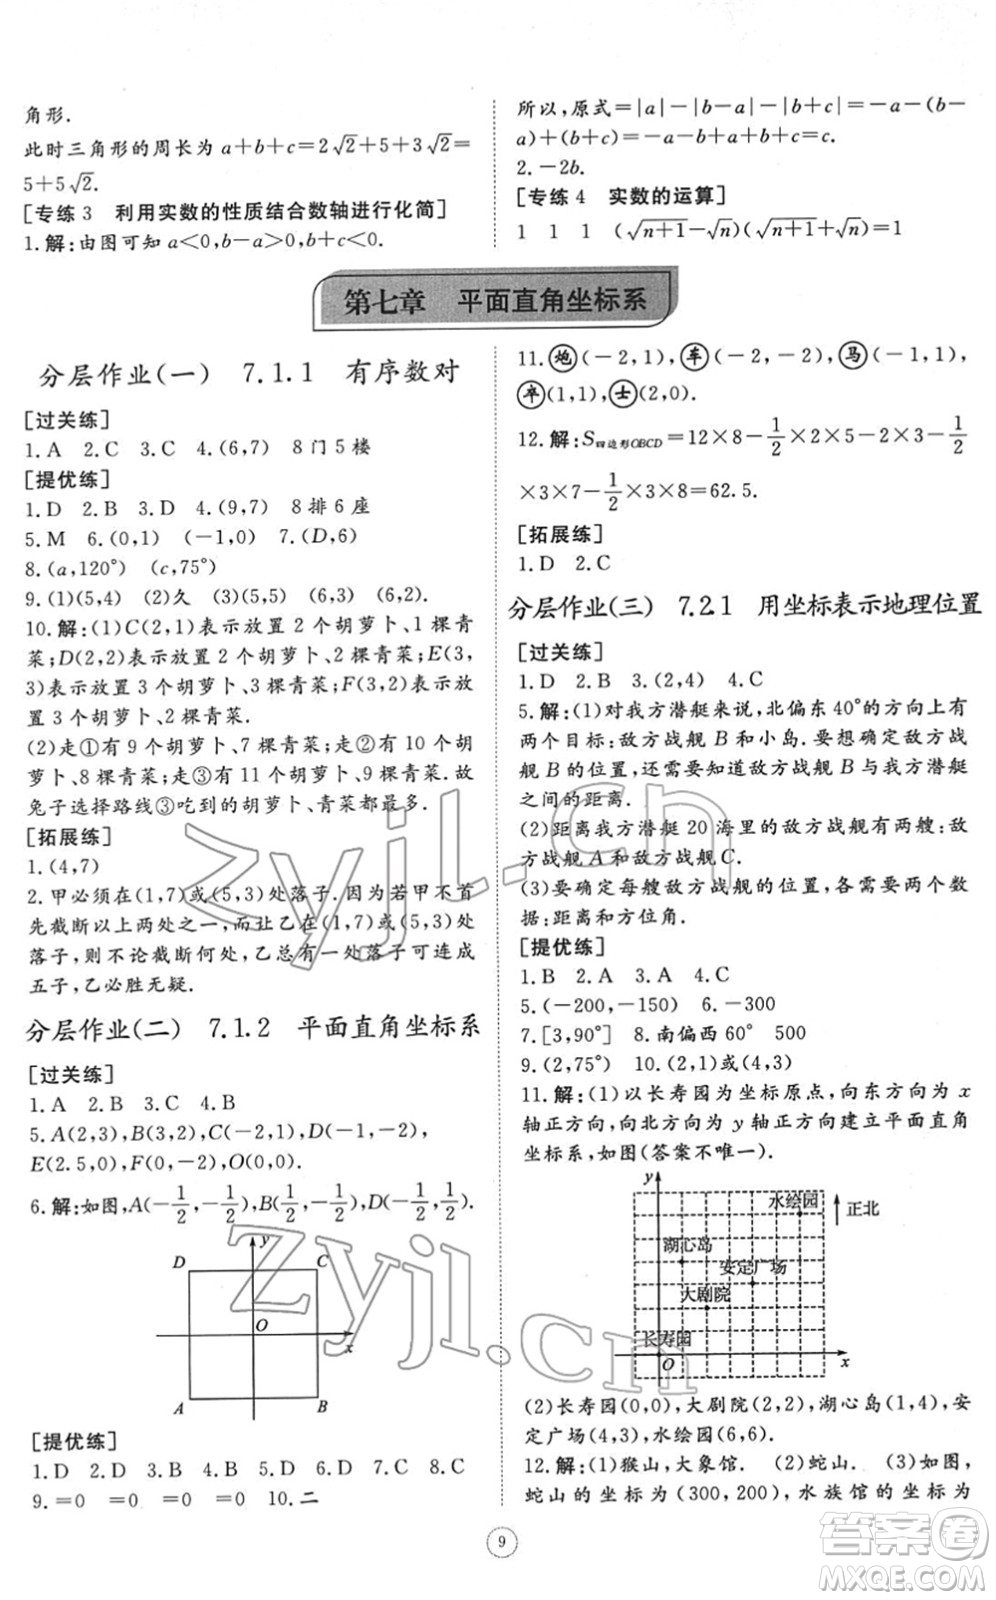 角形.
此时三角形的周长为 a+b+c=2√2+5+3√2=
5+5√2.
[专练3 利用实数的性质结合数轴进行化简]
1.解:由图可知 a<0,b-a>0,b+c<0.
所以,原式=|a|-|b-a|-|b+c|=-a-(b-
a)+(b+c)=-a-b+a+b+c=c.
2.-2b.
[专练4 实数的运算]
1 1 1 (√n+1-√n)(√n+1+√n)=1
第七章 平面直角坐标系
分层作业(一) 7.1.1 有序数对
[过关练]
1.A 2.C 3.C 4.(6,7) 8门5楼
[提优练]
1.D 2.B 3.D 4.(9,7) 8排6座
5.M 6.(0,1) (-1,0) 7.(D,6)
8.(a,120°) (c,75°)
9.(1)(5,4) (2)久 (3)(5,6) (6,3) (6,2)
10.解:(1)C(2,1)表示放置2个胡萝卜、1棵青
菜;D(2,2)表示放置2个胡萝卜、2棵青菜;E(3,
3)表示放置3个胡萝卜、3棵青菜;F(3,2)表示放
置3个胡萝卜、2棵青菜.
(2)走①有9个胡萝卜、7棵青菜;走②有10个胡
萝卜、8棵青菜;走③有11个胡萝卜、9棵青菜.故
兔子选择路线③吃到的胡萝卜、青菜都最多.
[拓展练]
1.(4,7)
2.甲必须在(1,7)或(5,3)处落子.因为若甲不首
先截断以上两处之一,而让乙在(1,7)或(5,3)处
落子,则不论截断何处,乙总有一处可落子连成
五子,乙必胜无疑.
分层作业(二) 7.1.2 平面直角坐标系
[过关练]
1.A 2.B 3.A 4.B
5.A(2,3),B(3,2),C(-2,1),D(-1,-2),
E(2.5,0),F(0,-2),O(0,0).
6.解:如图,A(-1/2,-1/2),B(1/2,-1/2),D(-1/2,1/2).
y
D C
O
x
A B
[提优练]
1.D 2.B 3.D 4.D 5.D 6.D 7.C 8.C
9.=0 =0 =0 =0 10.二
11.炮(-2,1),车(-2,2),马(-1,1),
卒(1,1),士(2,0).
12.解:S四边形OBCD=12×8-1/2×2×5-2×3-1/2
×3×7-1/2×3×8=62.5.
[拓展练]
1.D 2.C
分层作业(三) 7.2.1 用坐标表示地理位置
[过关练]
1.D 2.D 3.(2,4) 4.C
5.解:(1)对我方潜艇来说,北偏东40°的方向上有
两个目标:敌方战舰B和小岛.要想确定敌方战
舰B的位置,还需要知道敌方战舰B与我方潜艇
之间的距离.
(2)距离我方潜艇20海里的敌方战舰有两艘:敌
方战舰A和敌方战舰C.
(3)要确定每艘敌方战舰的位置,各需要两个数
据:距离和方位角.
[提优练]
1.B 2.A 3.A 4.C
5.(-200,-150) 6.-300
7.[3,90°] 8.南偏西60° 500
9.(2,75°) 10.(2,1)或(4,3)
11.解:(1)以长寿园为坐标原点,向东方向为x
轴正方向,向北方向为y轴正方向建立平面直角
坐标系,如图(答案不唯一).
y
水绘园
正北
湖心岛
安定广场
大剧院
长寿园
O x
(2)长寿园(0,0),大剧院(2,2),湖心岛(1,4),安
定广场(4,3),水绘园(6,6).
12.解:(1)猴山,大象馆. (2)蛇山. (3)如图,
蛇山的坐标为(300,200),水族馆的坐标为
9
zyjl.cn
zyjl.cn
答案圈
MXQE.COM